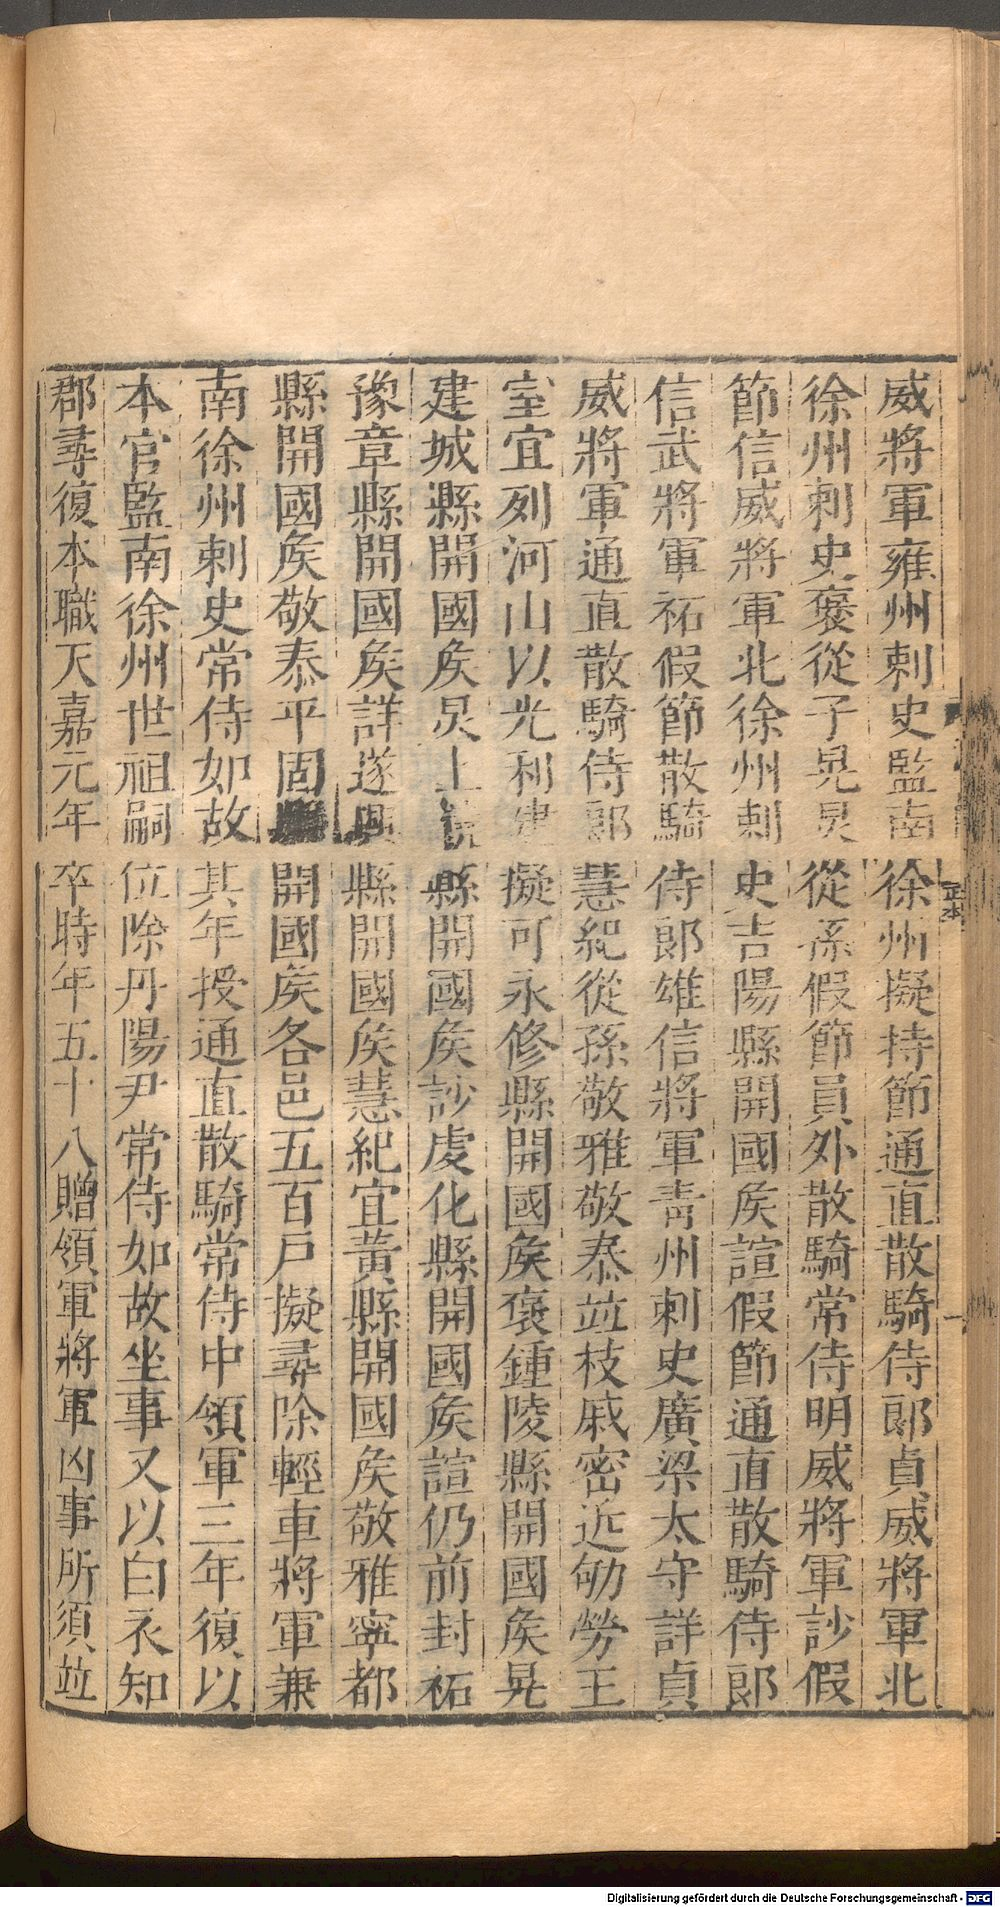 威將軍雍州刺史監南徐州擬持節通直散騎侍郎貞威將軍北
徐州刺史褒從子晃炅從孫假節員外散騎常侍明威將軍訬假
節信威將軍北徐州刺史吉陽縣開國侯諠假節通直散騎侍郎
信武將軍祏假節散騎侍郎雄信將軍青州刺史廣梁太守詳貞
威將軍通直散騎侍郎慧紀從孫敬雅敬泰竝枝戚密近劬勞王
室宜列河山以光利建擬可永修縣開國侯褒鍾陵縣開國侯晃
建城縣開國侯炅上饒縣開國侯訬虔化縣開國侯諠仍前封祏
豫章縣開國侯詳遂興縣開國侯慧紀宜黃縣開國侯敬雅寧都
縣開國侯敬泰平固縣開國侯各邑五百戶擬尋除輕車將軍兼
南徐州刺史常侍如故其年授通直散騎常侍中領軍三年復以
本官監南徐州世祖嗣位除丹陽尹常侍如故坐事又以白衣知
郡尋復本職天嘉元年卒時年五十八贈領軍將軍凶事所須竝
Digitalisierung gefördert durch die Deutsche Forschungsgemeinschaft - DFG